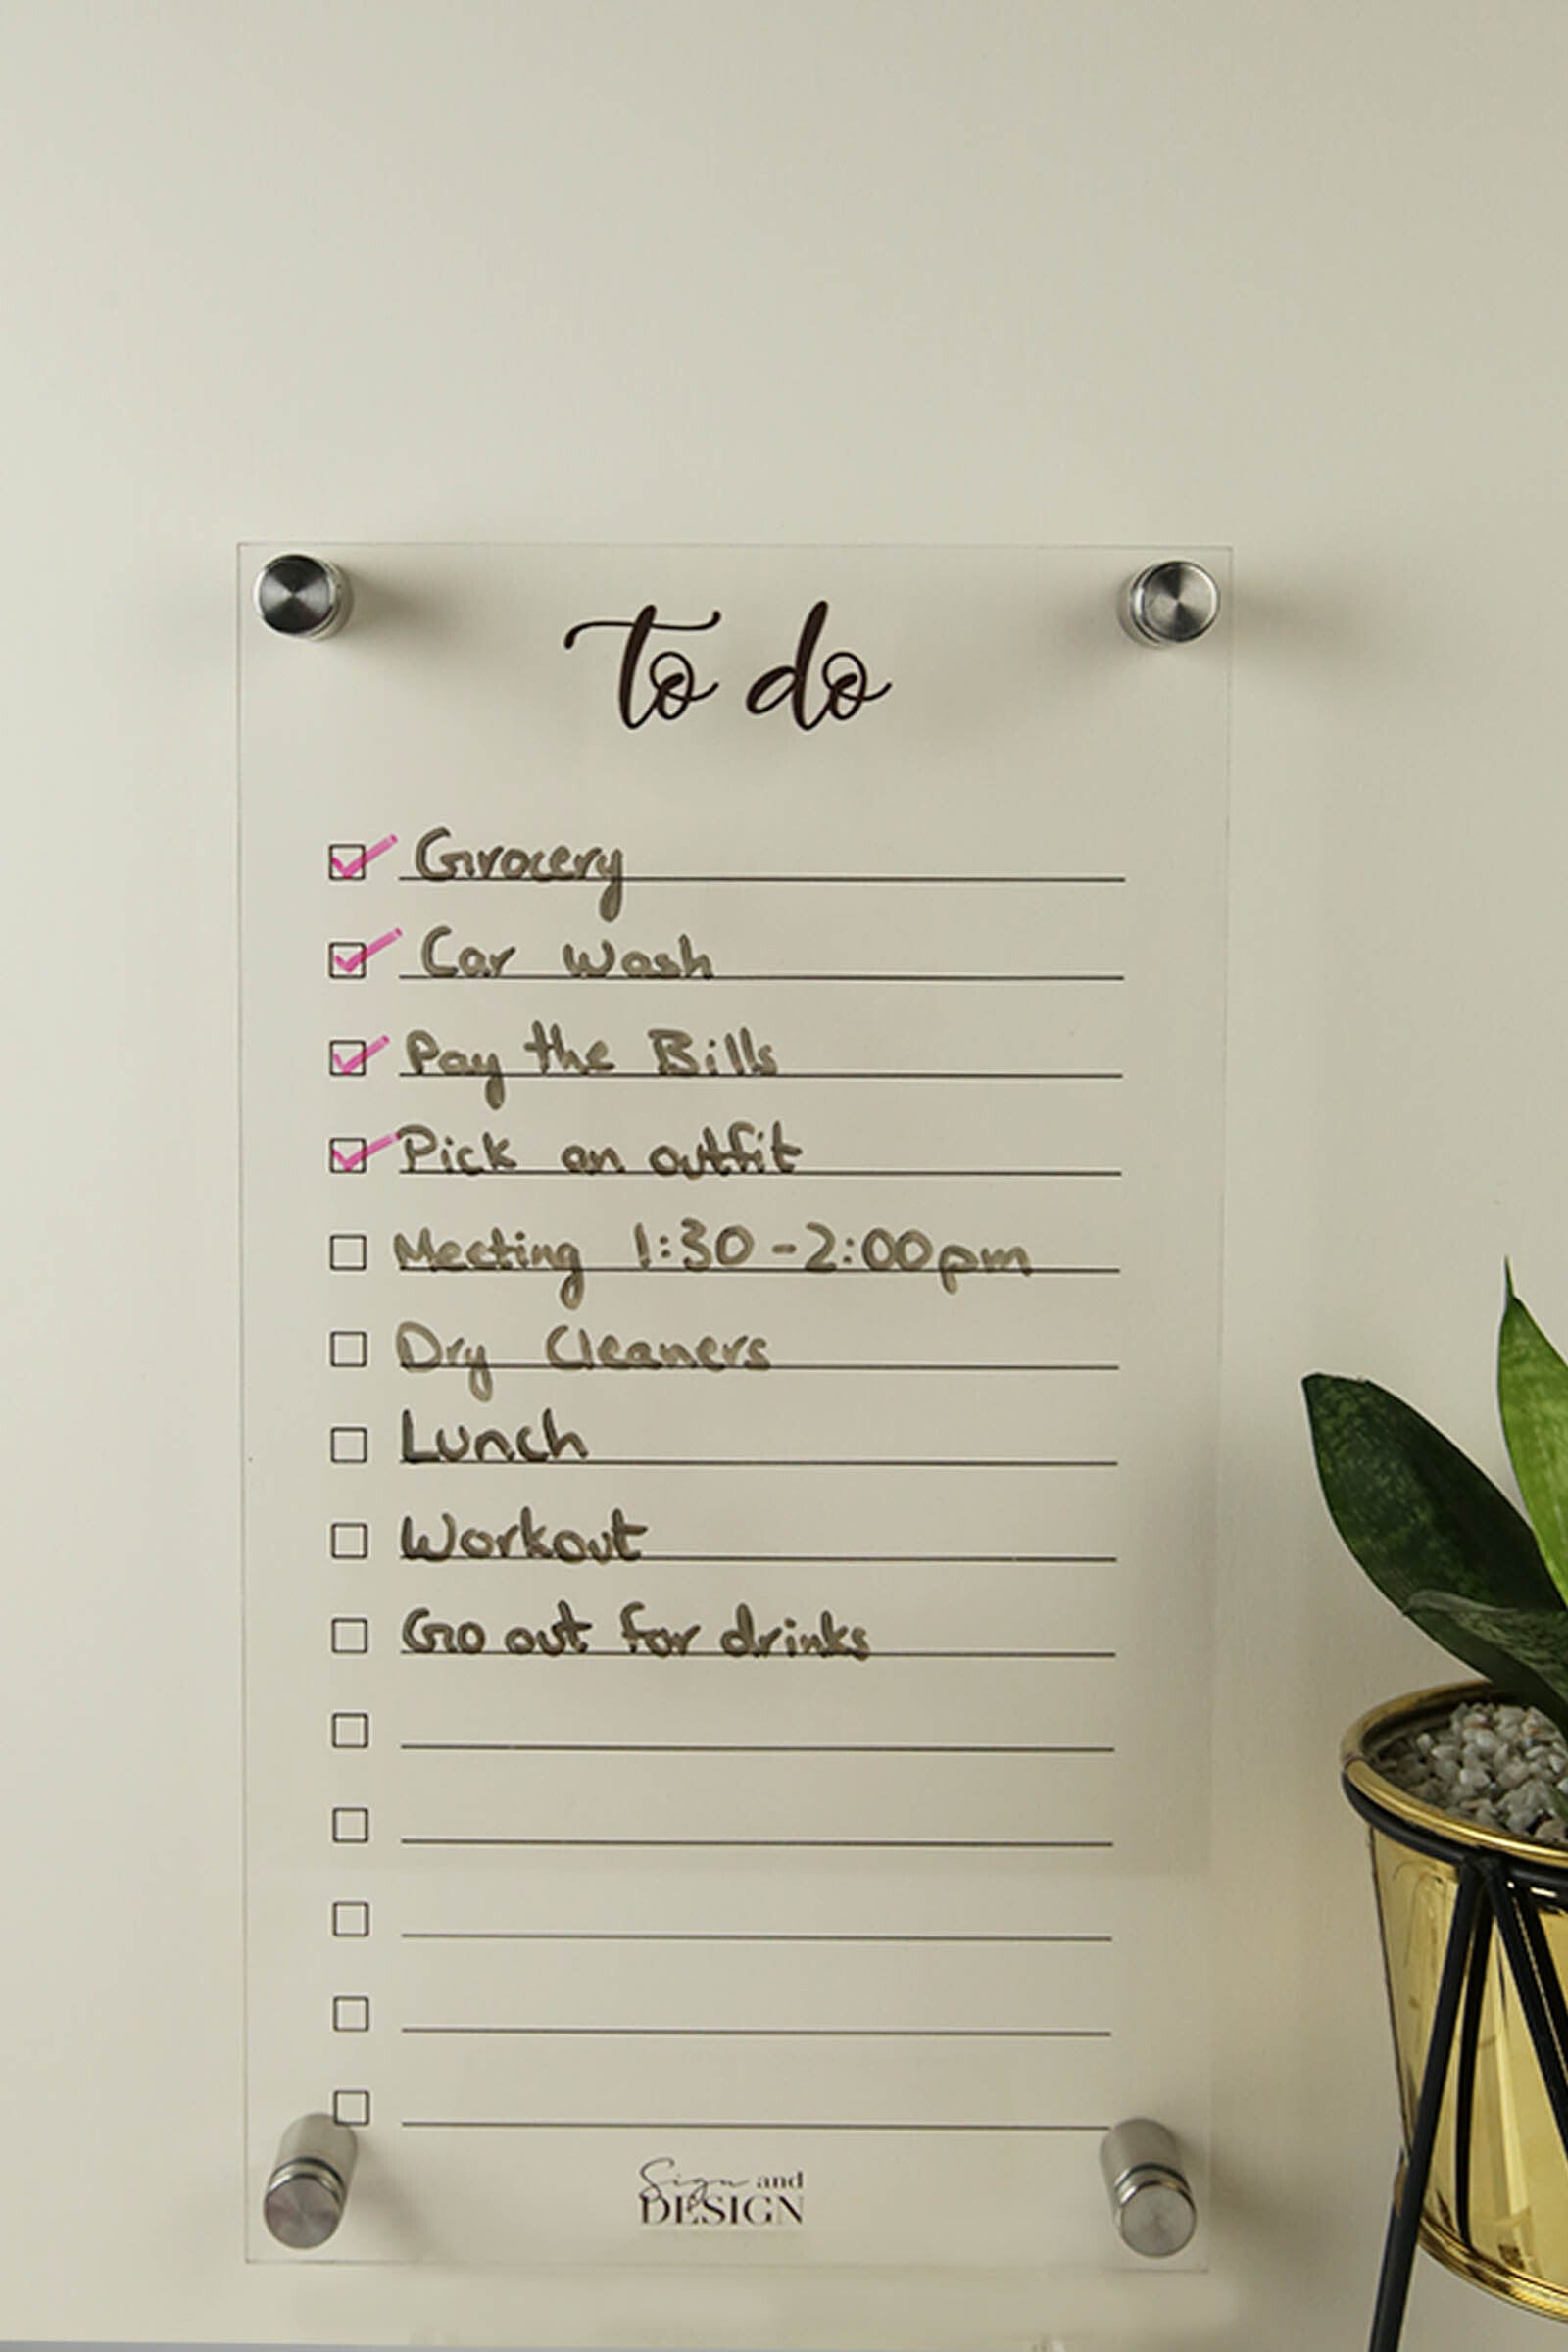 to do
Grocery
Car Wash
Pay the Bills
Pick an outfit
Meeting 1:30-2:00pm
Dry Cleaners
Lunch
Workout
Go out for drinks
Sign and
DESIGN